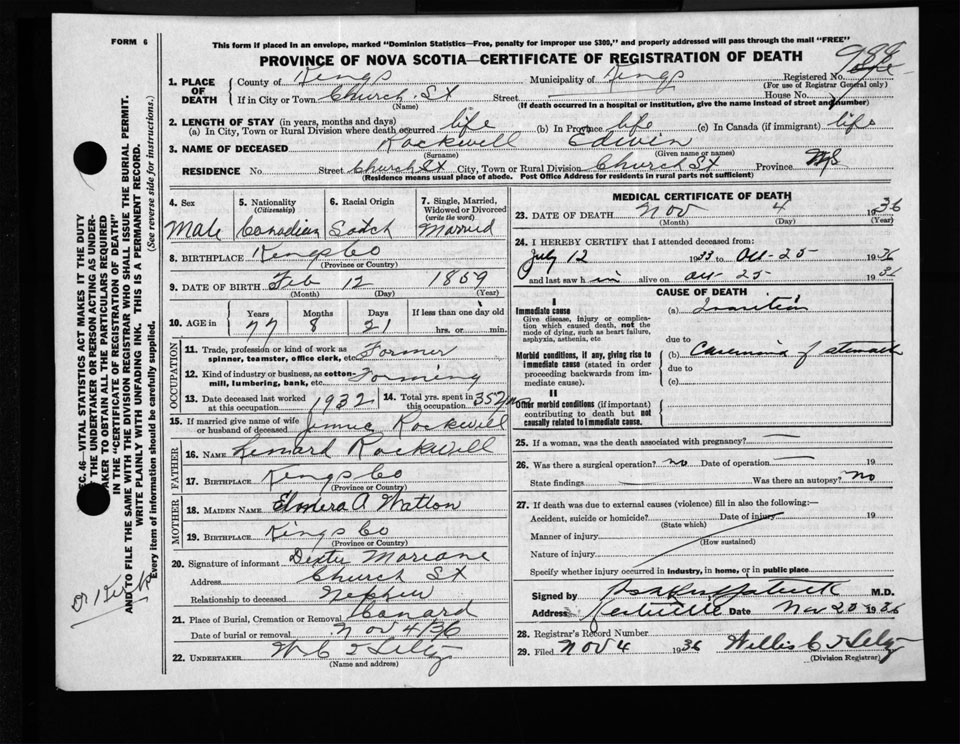 FORM 6
This form if placed in an envelope, marked "Dominion Statistics—Free, penalty for improper use $300," and properly addressed will pass through the mail "FREE"
PROVINCE OF NOVA SCOTIA—CERTIFICATE OF REGISTRATION OF DEATH
1. PLACE OF DEATH
County of Kings Municipality of Kings Registered No.
(For use of Registrar General only)
If in City or Town Church St Street House No.
(Name) (If death occurred in a hospital or institution, give the name instead of street and number)
2. LENGTH OF STAY (in years, months and days)
(a) In City, Town or Rural Division where death occurred life (b) In Province life (c) In Canada (if immigrant) life
3. NAME OF DECEASED Rockwell Edwin
(Surname) (Given name or names)
RESIDENCE No. Street Church St City, Town or Rural Division Church St Province NS
(Residence means usual place of abode. Post Office Address for residents in rural parts not sufficient)
4. Sex
Male
5. Nationality
(Citizenship)
Canadian
6. Racial Origin
Scotch
7. Single, Married, Widowed or Divorced
(write the word)
Married
8. BIRTHPLACE Kings Co
(Province or Country)
9. DATE OF BIRTH Feb 12 1859
(Month) (Day) (Year)
10. AGE in
Years Months Days If less than one day old
77 8 21 hrs. or min.
OCCUPATION
11. Trade, profession or kind of work as spinner, teamster, office clerk, etc. Farmer
12. Kind of industry or business, as cotton-mill, lumbering, bank, etc. Farming
13. Date deceased last worked at this occupation 1932
14. Total yrs. spent in this occupation 35
15. If married give name of wife or husband of deceased Rockwell
FATHER
16. NAME Rockwell
17. BIRTHPLACE Kings Co
(Province or Country)
MOTHER
18. MAIDEN NAME Elmera A Watton
19. BIRTHPLACE Kings Co
(Province or Country)
20. Signature of informant
Address Church St
Relationship to deceased Nephew
21. Place of Burial, Cremation or Removal Canard
Date of burial or removal Nov 4/36
22. UNDERTAKER W C
(Name and address)
MEDICAL CERTIFICATE OF DEATH
23. DATE OF DEATH Nov 4 1936
(Month) (Day) (Year)
24. I HEREBY CERTIFY that I attended deceased from:
July 12 1933 to Oct-25 1936
and last saw him alive on Oct-25 1936
CAUSE OF DEATH
I
Immediate cause
Give disease, injury or complication which caused death, not the mode of dying, such as heart failure, asphyxia, asthenia, etc
(a) Inanition
due to
Morbid conditions, if any, giving rise to immediate cause (stated in order proceeding backwards from immediate cause).
(b) Carcinoma of stomach
due to
(c)
II
Other morbid conditions (if important) contributing to death but not causally related to immediate cause.
25. If a woman, was the death associated with pregnancy?
26. Was there a surgical operation? no Date of operation 19
State findings Was there an autopsy? No
27. If death was due to external causes (violence) fill in also the following:—
Accident, suicide or homicide? Date of injury 19
(State which)
Manner of injury
(How sustained)
Nature of injury
Specify whether injury occurred in industry, in home, or in public place
Signed by M.D.
Address Kentville Date Nov 20 1936
28. Registrar's Record Number
29. Filed Nov 4 1936 Willis C
(Division Registrar)
SEC. 46—VITAL STATISTICS ACT MAKES IT THE DUTY
OF THE UNDERTAKER OR PERSON ACTING AS UNDERTAKER TO OBTAIN ALL THE PARTICULARS REQUIRED
IN THE "CERTIFICATE OF REGISTRATION OF DEATH"
AND TO FILE THE SAME WITH THE DIVISION REGISTRAR WHO SHALL ISSUE THE BURIAL PERMIT.
WRITE PLAINLY WITH UNFADING INK. THIS IS A PERMANENT RECORD.
Every item of information should be carefully supplied. (See reverse side for instructions.)